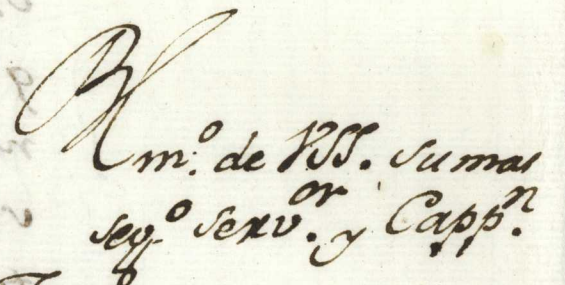 Bl m.º de VSS. su mas
seg.º serv.or y Capp.n